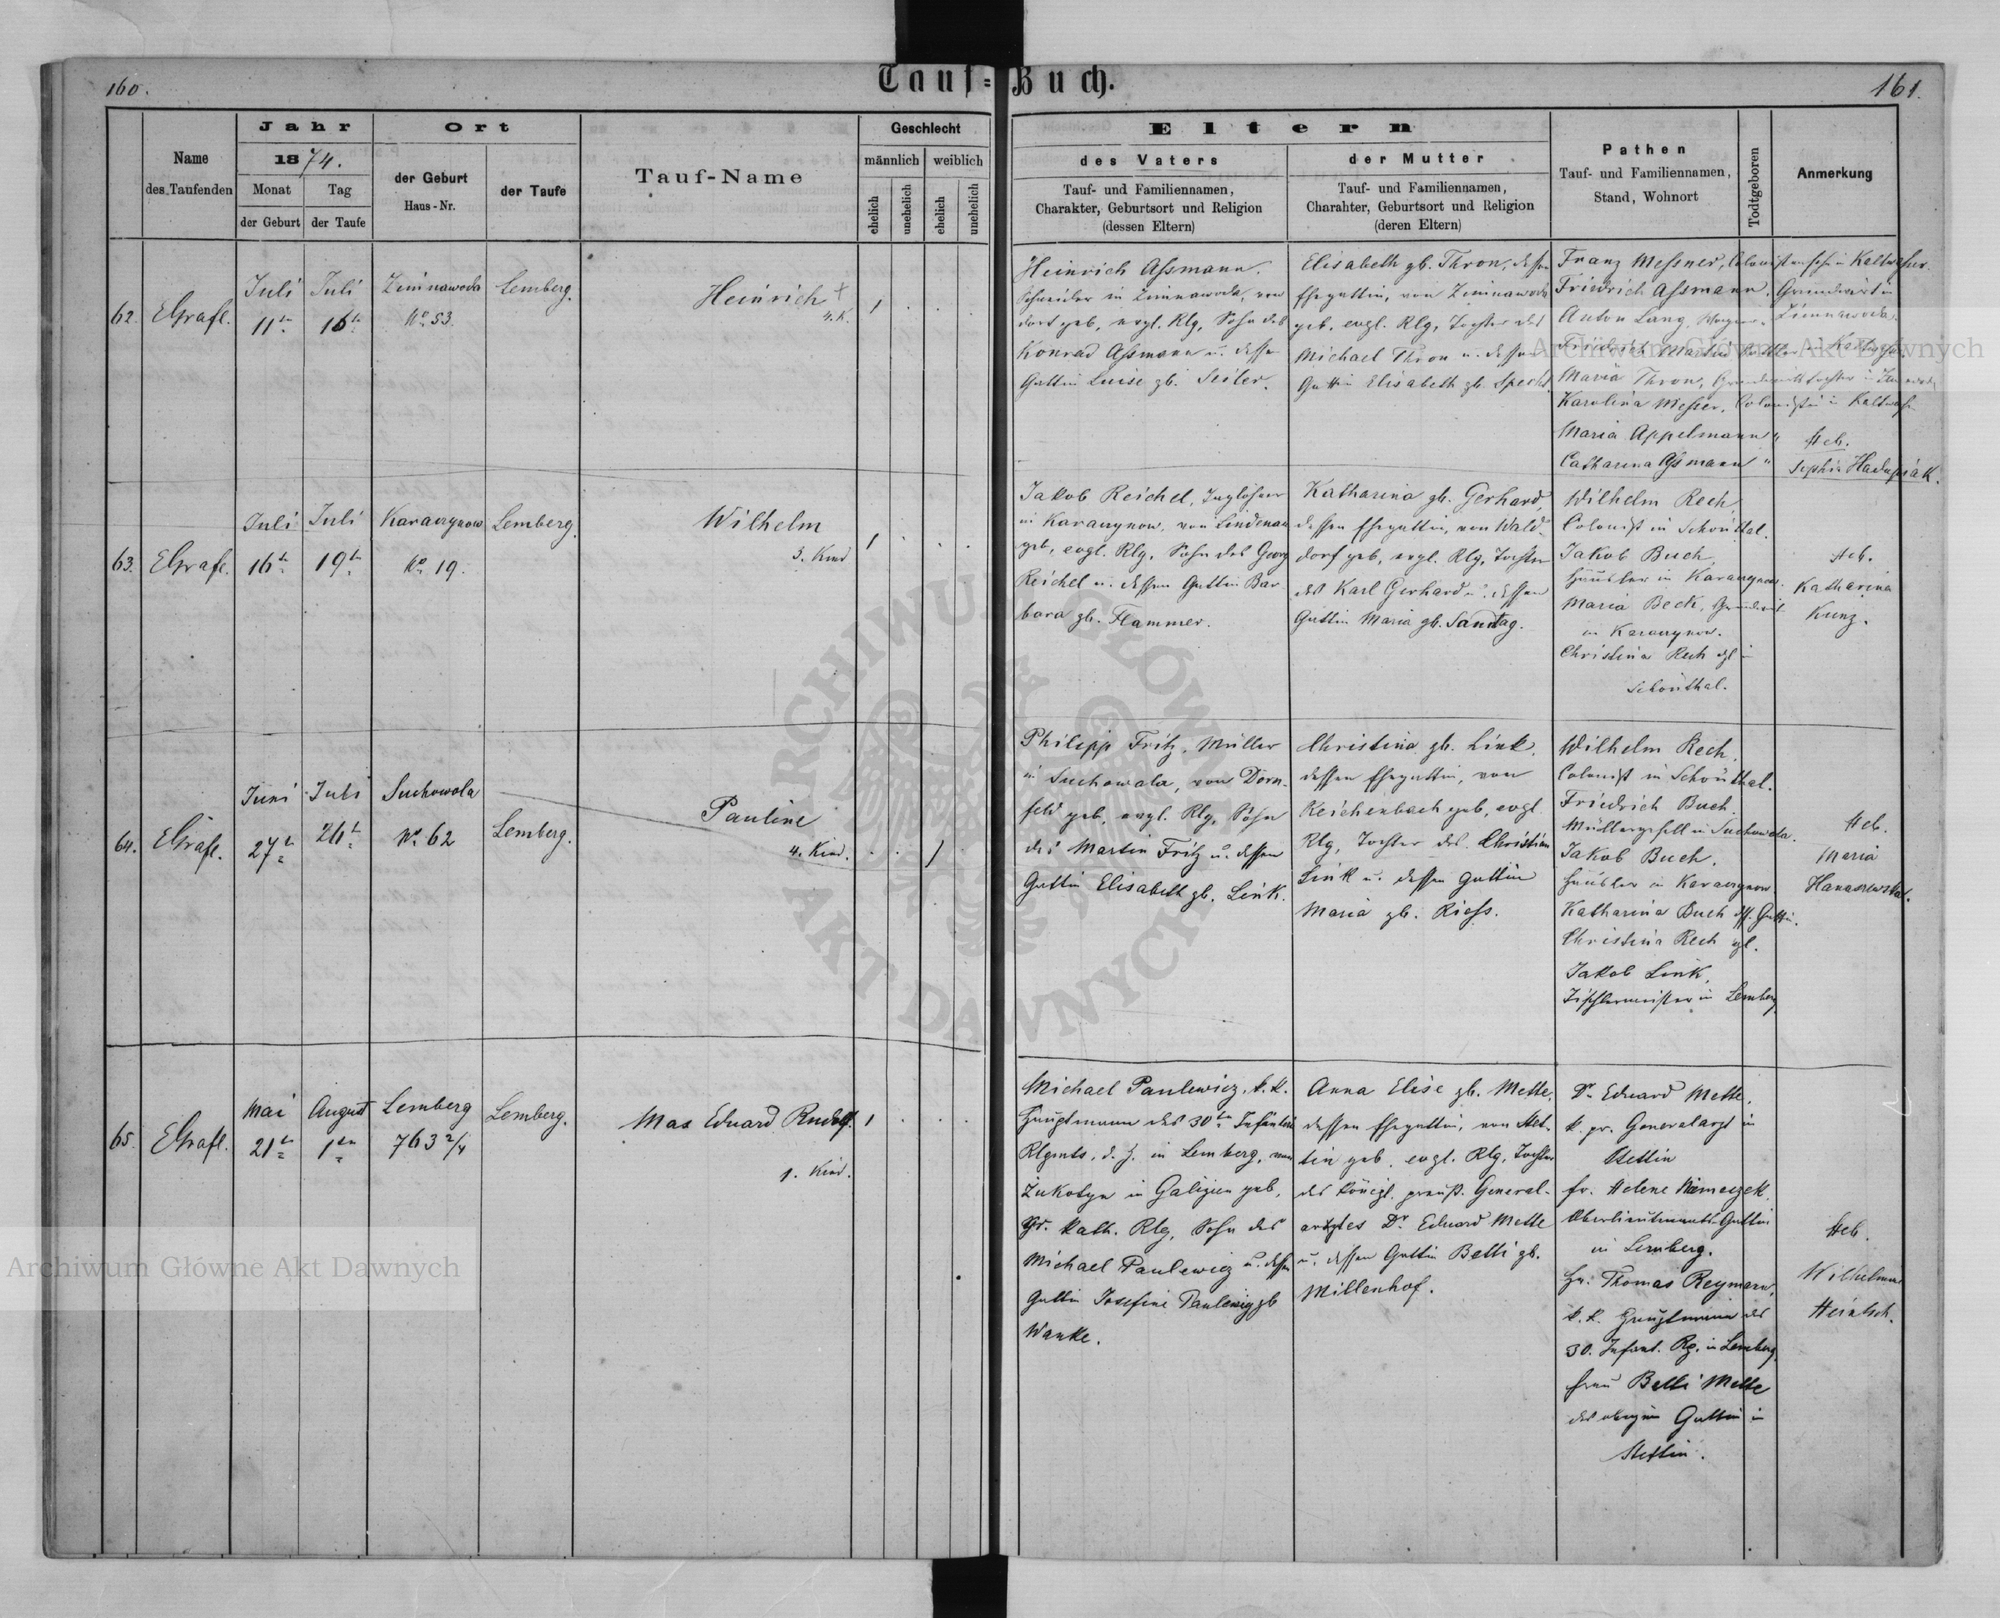 160.
Tauf-Buch.
161.
Name
des Taufenden
Jahr
1874.
Monat
Tag
der Geburt
der Taufe
Ort
der Geburt
Haus-Nr.
der Taufe
Tauf-Name
Geschlecht
männlich
weiblich
ehelich
unehelich
ehelich
unehelich
Eltern
des Vaters
Tauf- und Familiennamen,
Charakter, Geburtsort und Religion
(dessen Eltern)
der Mutter
Tauf- und Familiennamen,
Charahter, Geburtsort und Religion
(deren Eltern)
Pathen
Tauf- und Familiennamen,
Stand, Wohnort
Todtgeboren
Anmerkung
62.
EGrafl.
Juli
11tn
Juli
16tn
Zimnawoda
No 53.
Lemberg.
Heinrich +
4. K.
1
Heinrich Assmann.
Schneider in Zimnawoda, von
dort geb, evgl. Rlg, Sohn des
Konrad Assmann u. dessen
Gattin Luise gb. Seiler.
Elisabeth gb. Thron, dessen
Ehegattin, von Zimnawoda
geb. evgl. Rlg, Tochter des
Michael Thron u. dessen
Gattin Elisabeth gb. Specht.
Franz Messner, Colonistensohn in Kaltwasser.
Friedrich Assmann, Grundwirt in
Anton Lang, Zimnawoda.
Friedrich Martin
Maria Thron,
Karolina Messer, Colonistin in Kaltwass.
Maria Appelmann "
Catharina Assmann "
Heb.
Sophia
63.
EGrafl.
Juli
16tn
Juli
19tn
Karaczynow
No 19.
Lemberg.
Wilhelm
3. Kind
1
Jakob Reichel, Taglöhner
in Karaczynow, von Lindenau
geb, evgl. Rlg, Sohn des Georg
Reichel u. dessen Gattin Bar
bara gb. Flammer.
Katharina gb. Gerhard,
dessen Ehegattin, von Wald-
dorf geb, evgl. Rlg, Tochter
des Karl Gerhard u. dessen
Gattin Maria gb. Sandtag.
Wilhelm Rech,
Colonist in Schönthal.
Jakob Buch
Häusler in Karaczynow.
Maria Beck,
in Karaczynow.
Christina Rech in
Schönthal.
Heb.
Katharina
Kunz.
64.
EGrafl.
Juni
27tn
Juli
26tn
Suchowola
No 62
Lemberg.
Pauline
4. Kind.
1
Philipp Fritz, Müller
in Suchowola, von Dorn-
feld geb, evgl. Rlg, Sohn
des Martin Fritz u. dessen
Gattin Elisabeth gb. Link.
Christina gb. Link.
dessen Ehegattin, von
Reichenbach geb, evgl
Rlg, Tochter des Christian
Link u. dessen Gattin
Maria gb. Riess.
Wilhelm Rech,
Colonist in Schönthal.
Friedrich Buch
Müllergesell in Suchowola.
Jakob Buch,
Häusler in Karaczynow
Katharina Buch Gattin.
Christina Rech
Jakob Link,
Tischlermeister in Lemberg
Heb.
Maria
65.
EGrafl.
Mai
21tn
August
1tn
Lemberg
763 2/4
Lemberg.
Max Eduard Rudolf.
1. Kind.
1
Michael Paulewicz, k. k.
Hauptmann des 30tn Infanterie
Rlgmts, d. Z. in Lemberg, von
Zukotyn in Galizien geb,
gr. kath. Rlg, Sohn des
Michael Paulewicz u. dessen
Gattin Josefine Paulewicz gb
Wanke.
Anna Elise gb. Mette,
dessen Ehegattin, von Stet-
tin geb, evgl. Rlg, Tochter
des königl. preuß. General-
arztes Dr. Eduard Mette
u. dessen Gattin Betti gb.
Millenhof.
Dr. Eduard Mette,
k. pr. Generalarzt in
Stettin
fr. Helene
Oberlieutenants Gattin
in Lemberg.
Hr. Thomas Reymann,
k. k. Hauptmann des
30. Infant. Rg. in Lemberg.
Frau Betti Mette
des obigen Gattin in
Stettin.
Heb.
Wilhelmine
Heintsch.
Archiwum Główne Akt Dawnych
Archiwum Główne Akt Dawnych
ARCHIWUM GŁÓWNE
AKT DAWNYCH